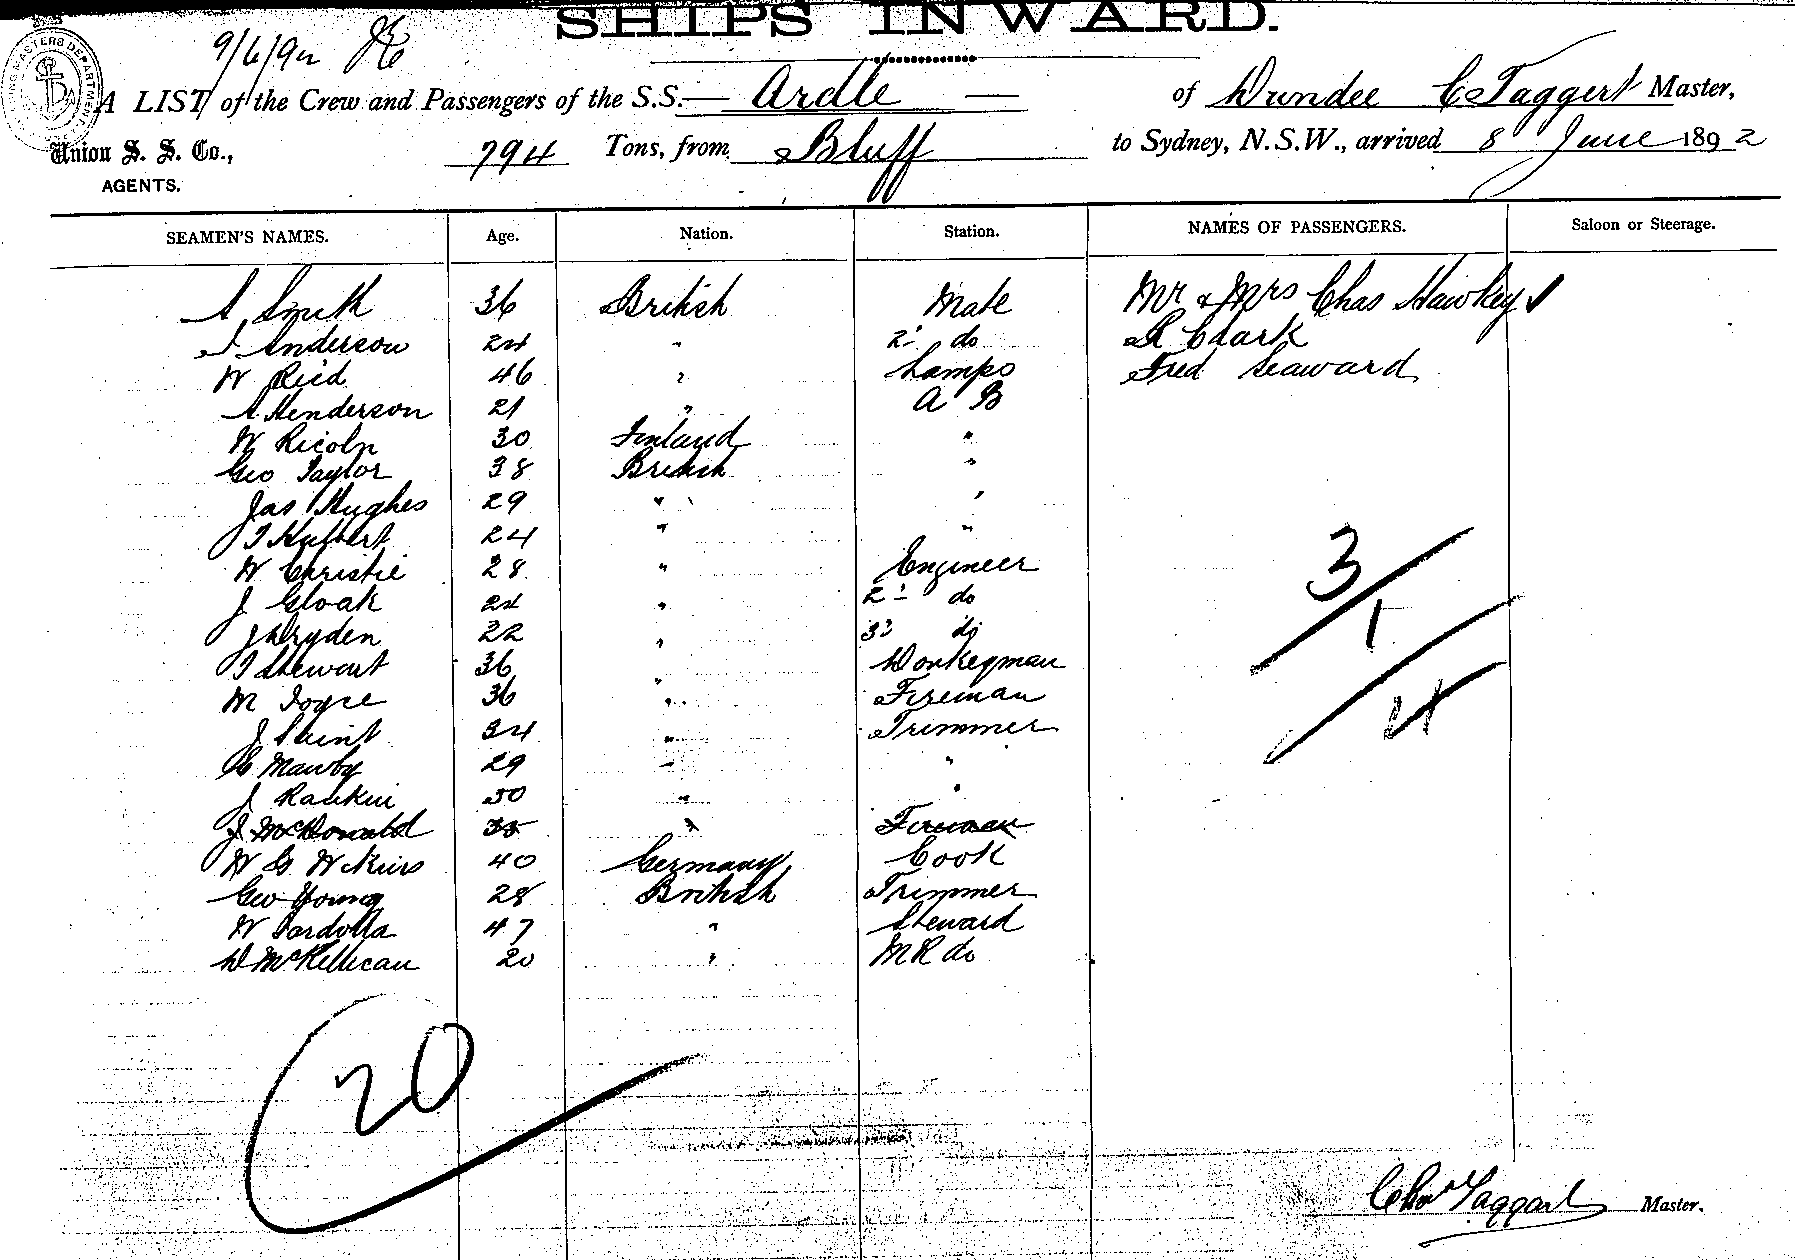 SHIPS INWARD.
9/6/92
A LIST of the Crew and Passengers of the S.S. Ardle of Dundee C Taggert Master,
Union S. S. Co., 794 Tons, from Bluff to Sydney, N.S.W., arrived 8 June 1892
AGENTS.
SEAMEN'S NAMES. Age. Nation. Station. NAMES OF PASSENGERS. Saloon or Steerage.
A Smith 36 British Mate Mr & Mrs Chas Hawkey ✓
J Anderson 24 " 2d do R Clark
W Reid 46 " Lamps Fred Seaward
A Henderson 21 " A B
W Ricoln 30 Finland "
Geo Taylor 38 British "
Jas Hughes 29 " "
T 24 " "
W Christie 28 " Engineer
J Gloak 24 " 2d do
J Dryden 22 " 3d do
T Stewart 36 " Donkeyman
M Joyce 36 " Fireman
J Saint 34 " Trimmer
C Mawby 29 " "
J Rankin 30 " "
J McDonald 35 " Fireman
W G 40 Germany Cook
Geo Young 28 British Trimmer
W 47 " Steward
D McKellican 20 " M R do
3/
1/
4
20
Chas Taggart Master.